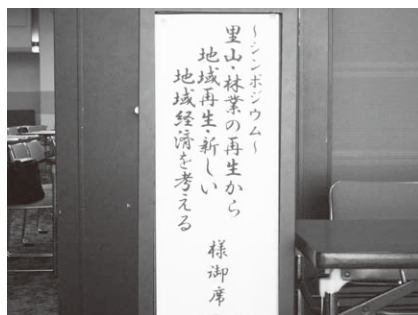 ～シンポジウム～
里山・林業の再生から
地域再生・新しい
地域経済を考える
様御席